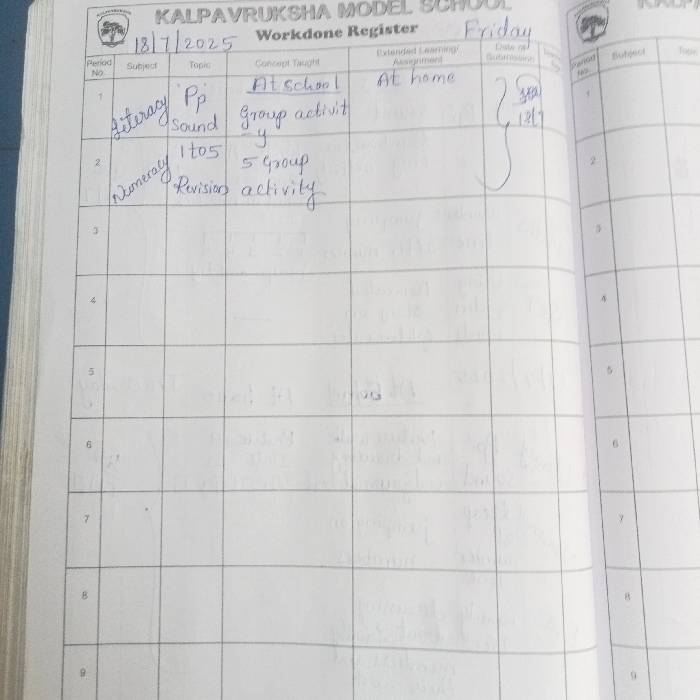 KALPAVRUKSHA MODEL SCHOOL
18/7/2025 Workdone Register Friday
Period No. Subject Topic Concept Taught Extended Learning/ Assignment Date of Submission
1 Literacy Pp Sound At school Group activit y At home
2 Numeracy 1 to 5 Revision 5 Group activity
3
4
5
6
7
8
9
Period No. Subject Topic
1
2
3
4
5
6
7
8
9